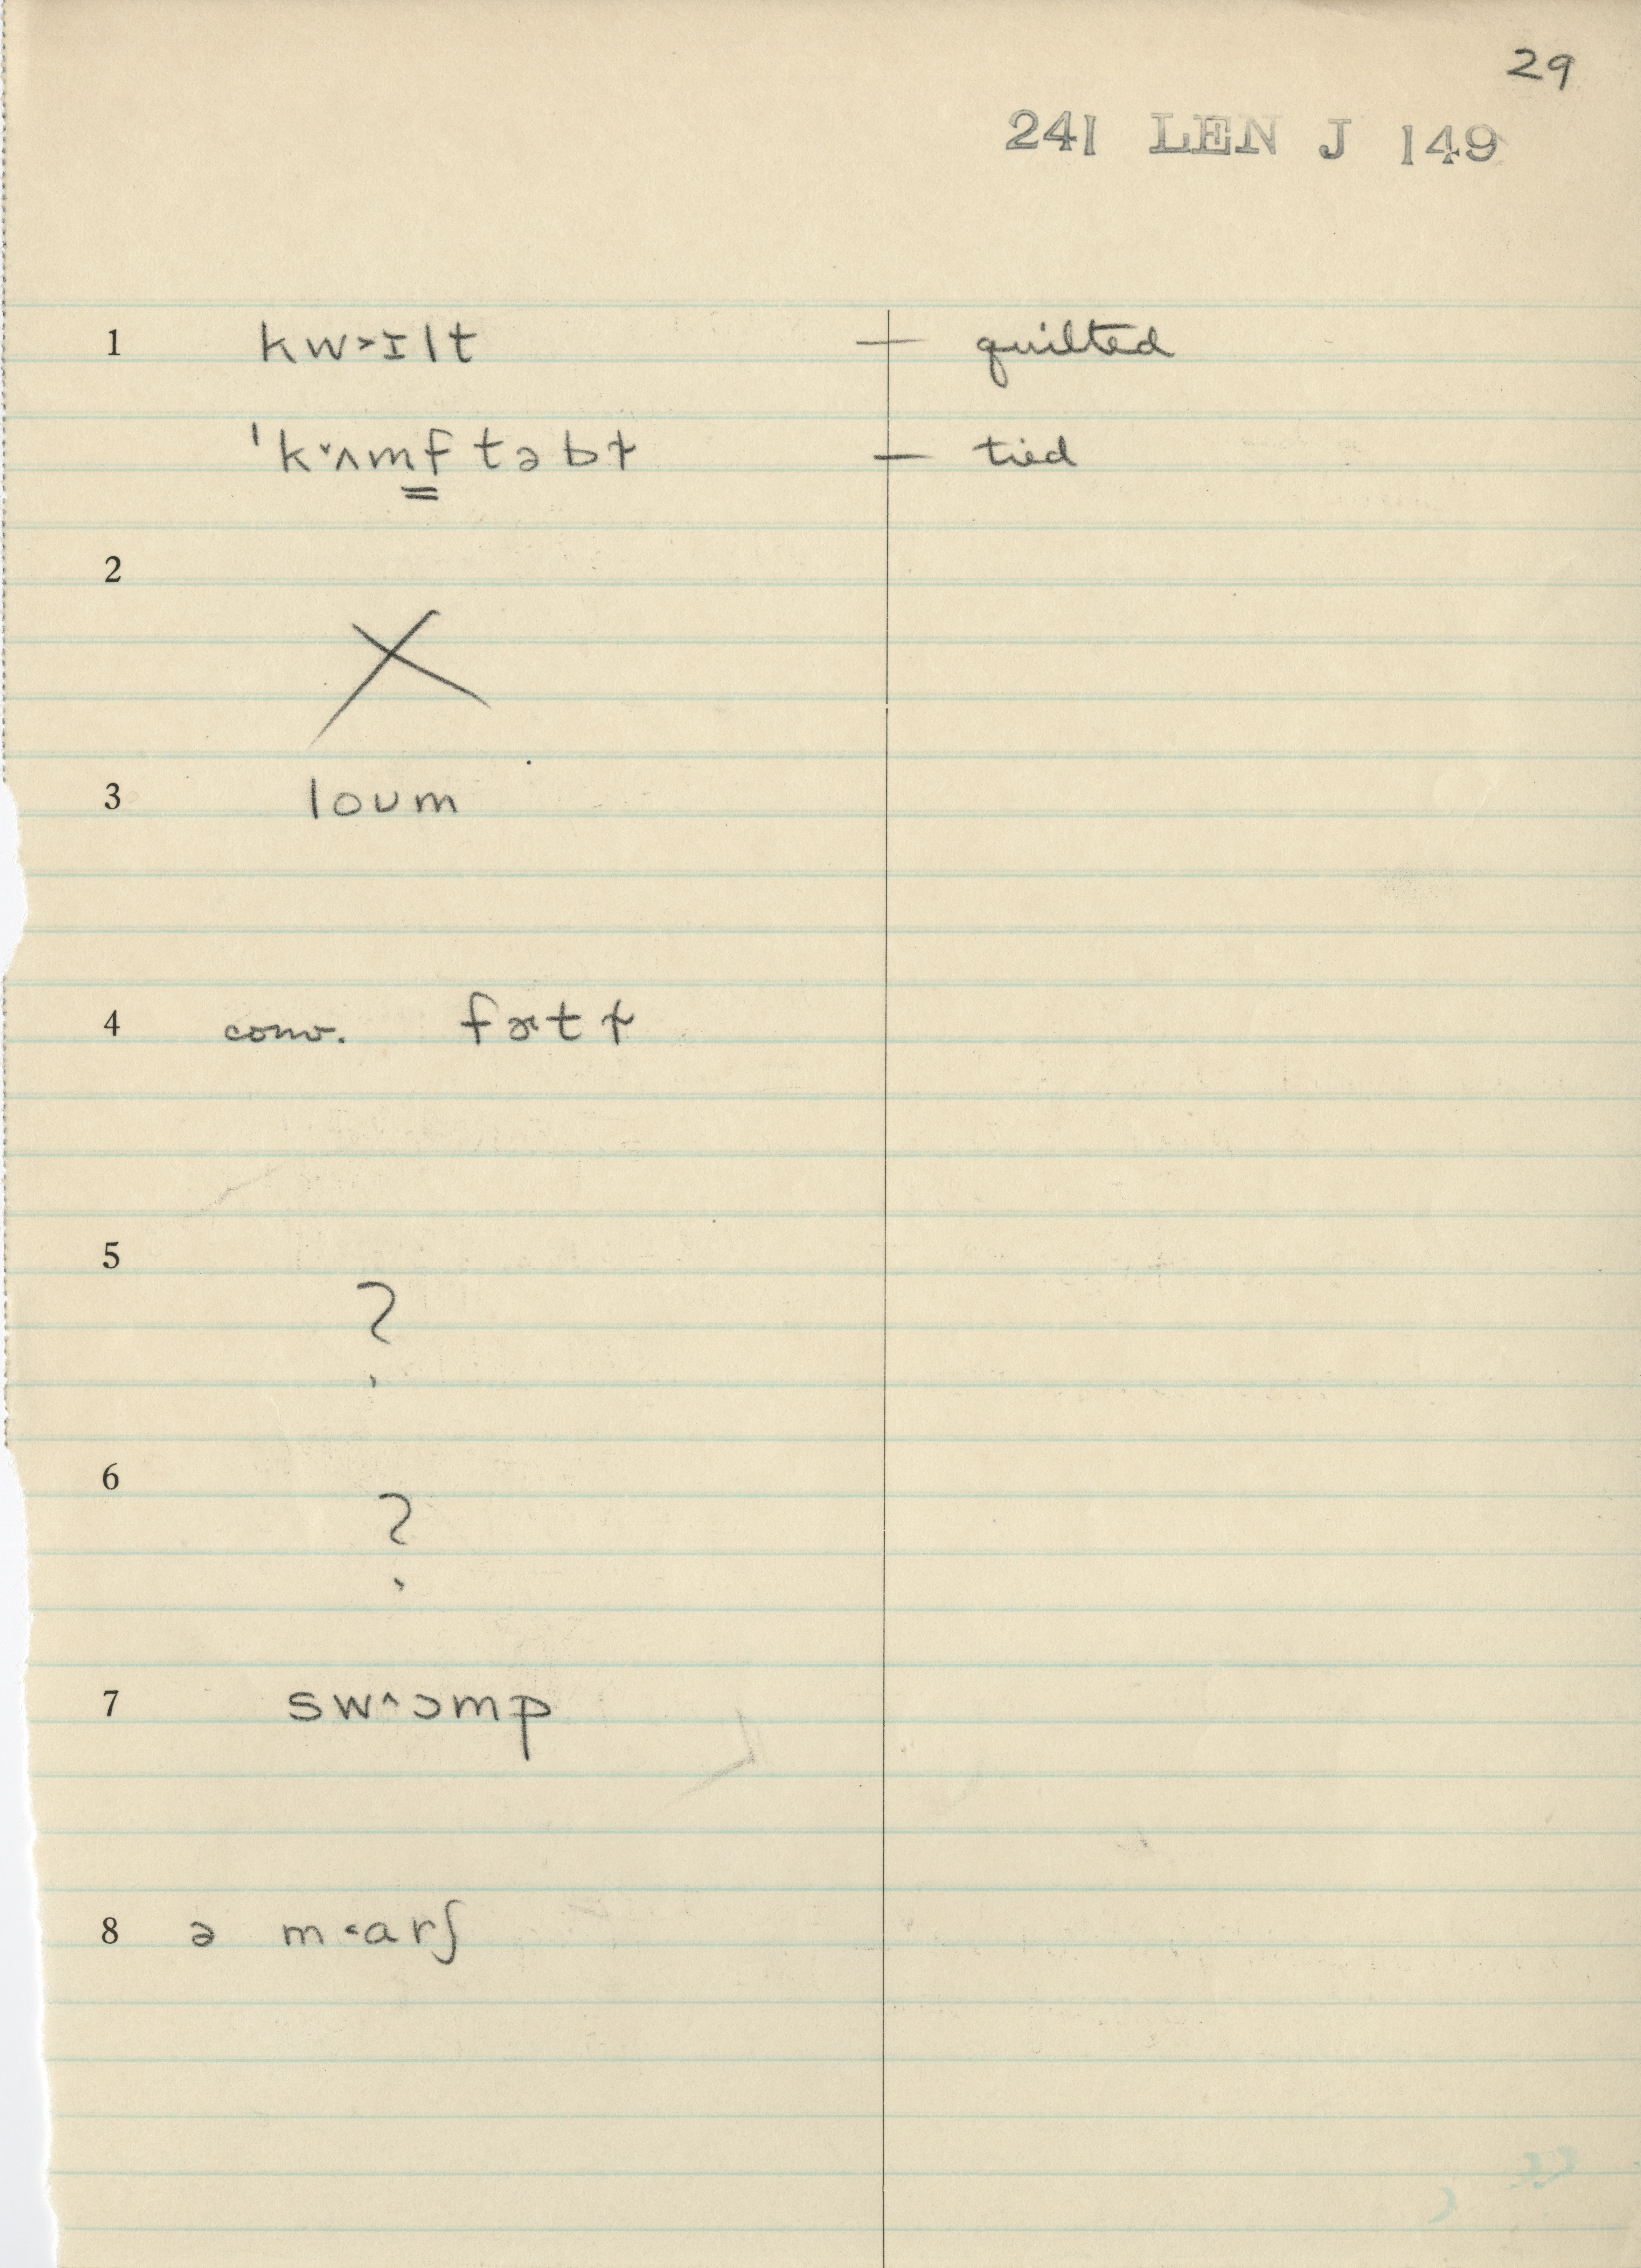 29
241 LEN J 149
1 kw˃ɪlt — quilted
ˈk˅ʌmf təbɫ — tied
2
X
3 loʊm
4 conv. fɚtɫ
5
?
6
?
7 sw˄ɔmp
8 ə m˂arʃ